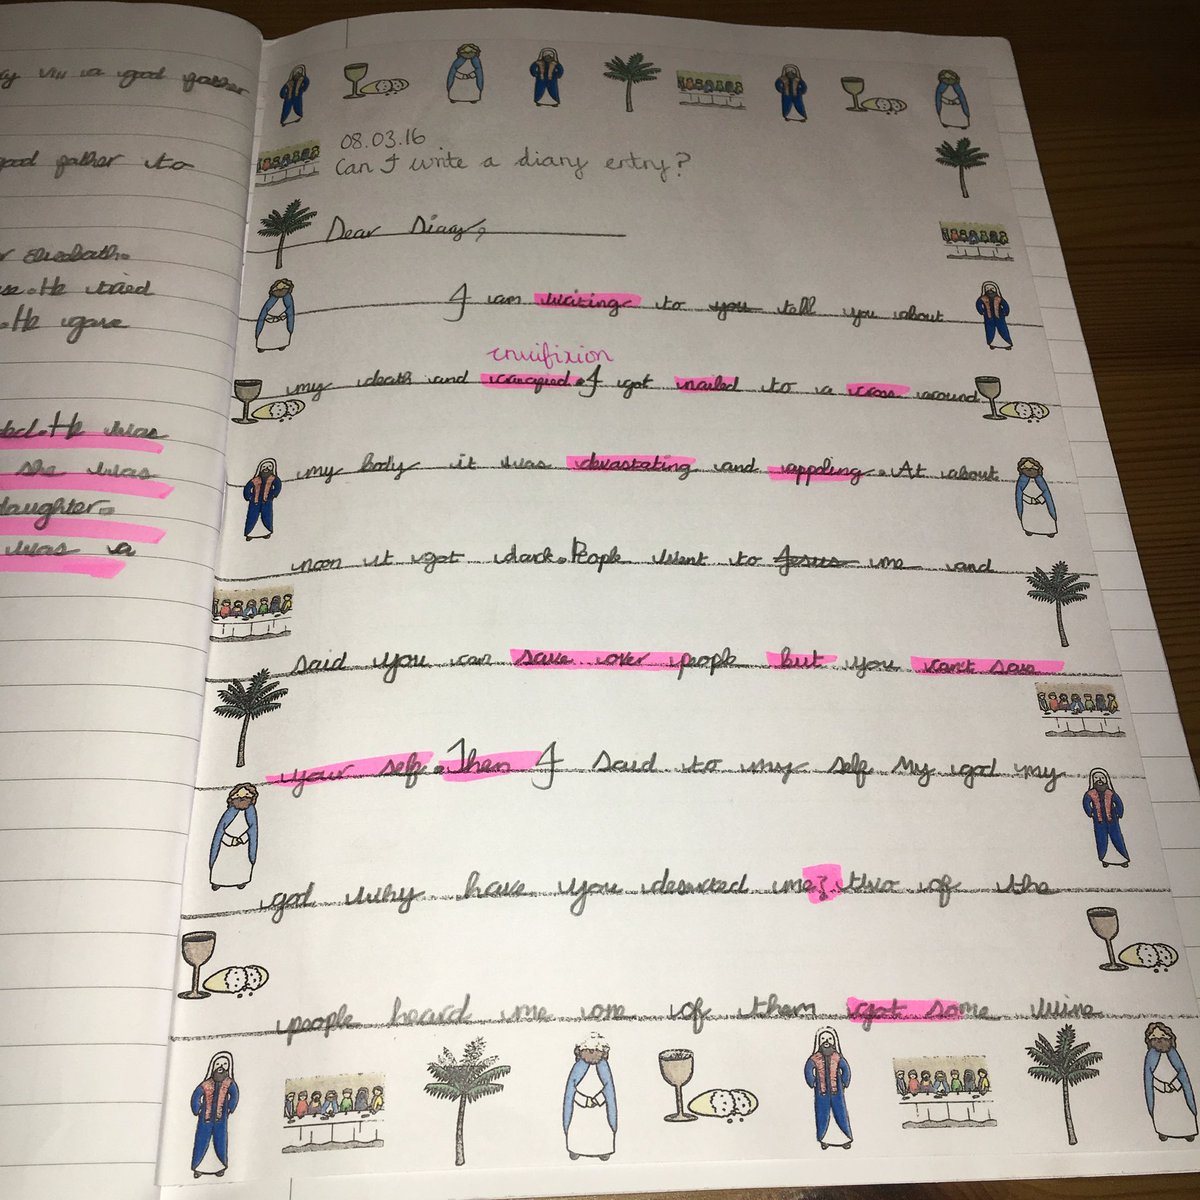 good father
good father to
Elizabeth.
He tried
He gave
He was
she was
daughter.
was a
08.03.16
Can I write a diary entry?
Dear Diary,
I am writing to you tell you about
crucifixion
my death and I got nailed to a cross around
my body it was devastating and appoling. At about
noon it got dark. People went to Jesus me and
said you can save over people but you can't save
your self. Then I said to my self My god my
god why have you deserted me? two of the
people heard me one of them got some wine